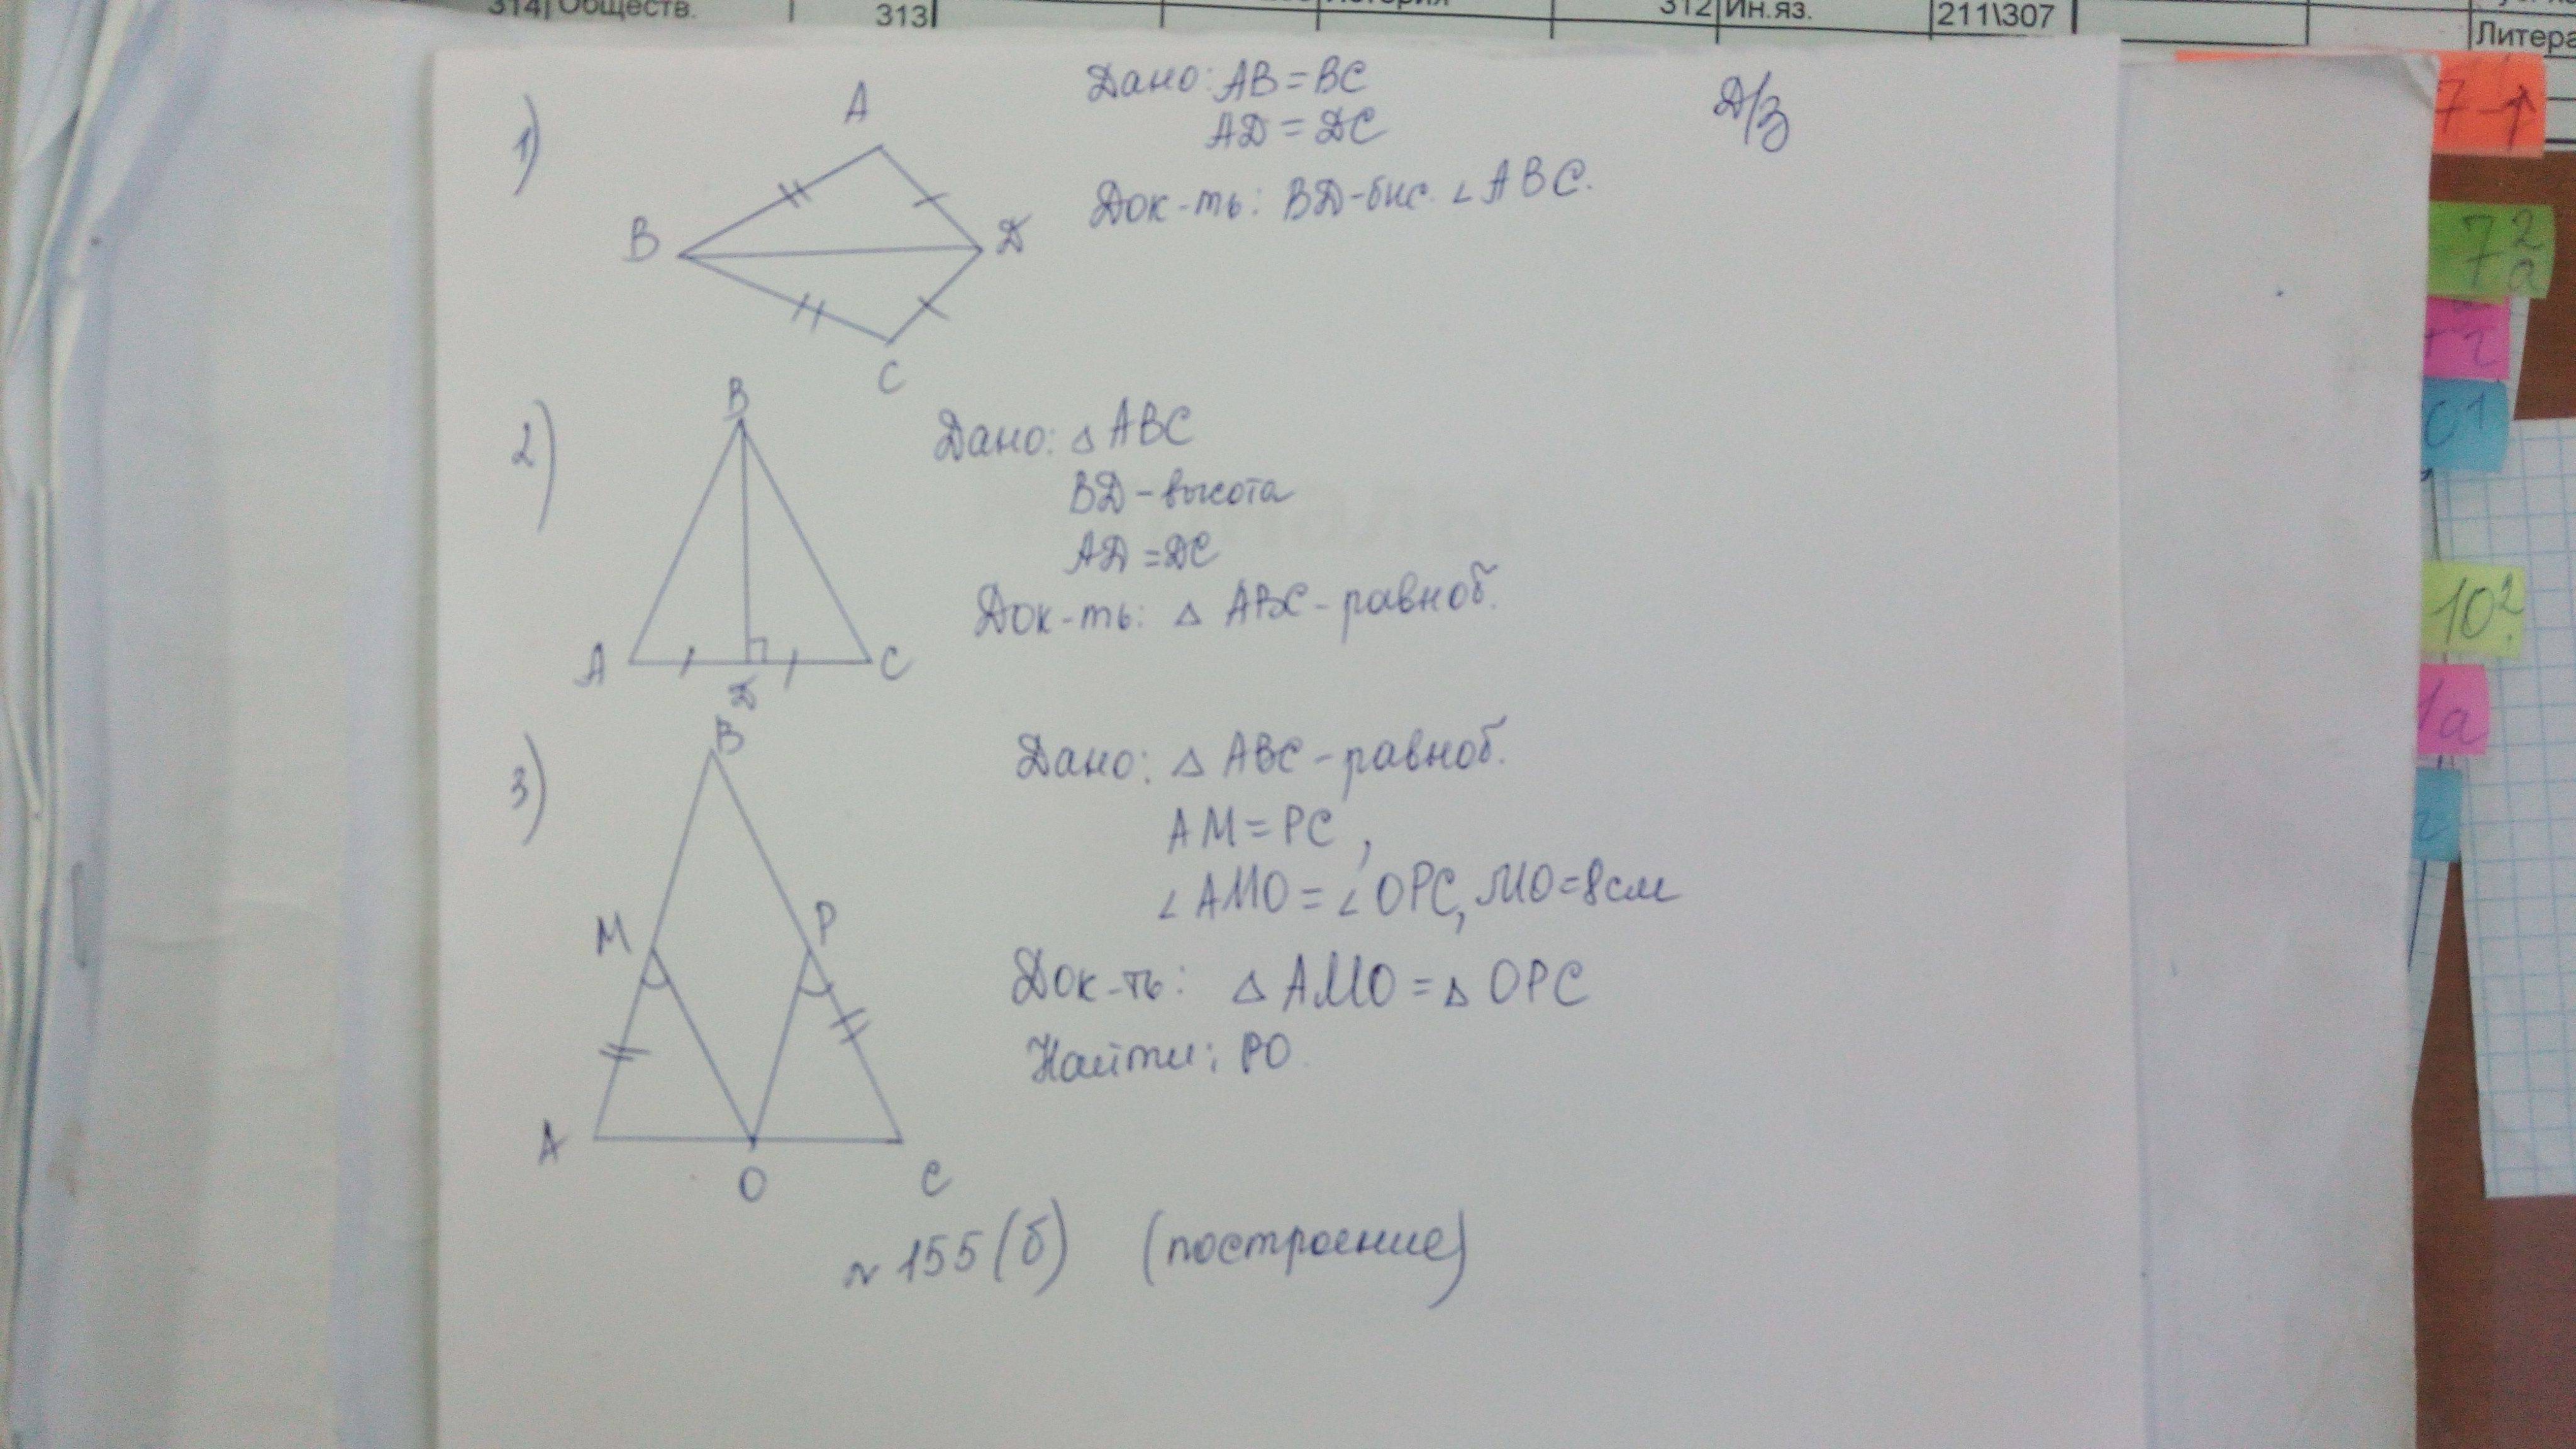 314 Обществ.
313
312 Ин.яз.
211\307
Литера
Д/з
1)
A
B
D
C
Дано: AB = BC
AD = DC
Док-ть: BD - бис. ∠ ABC.
2)
B
A
D
C
Дано: △ ABC
BD - высота
AD = DC
Док-ть: △ ABC - равноб.
3)
B
M
P
A
O
C
Дано: △ ABC - равноб.
AM = PC,
∠ AMO = ∠ OPC, MO = 8 см
Док-ть: △ AMO = △ OPC
Найти: PO.
№ 155 (б) (построение)
7
7 2 а
г
C1
10 2
1а
г